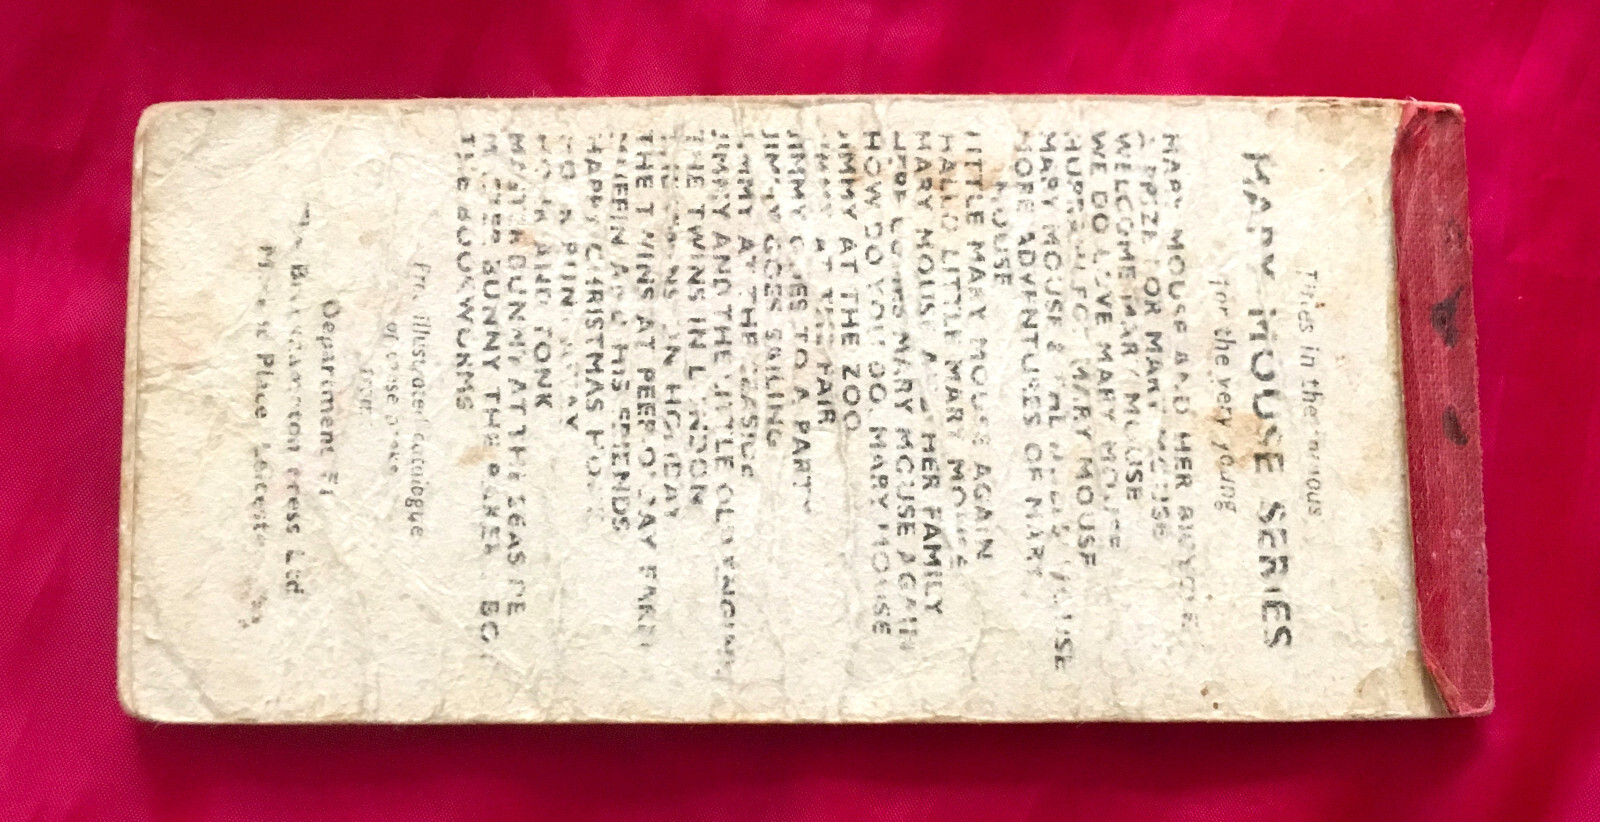 Titles in the famous
MARY MOUSE SERIES
for the very young
MARY MOUSE AND HER BICYCLE
A PRIZE FOR MARY MOUSE
WELCOME MARY MOUSE
WE DO LOVE MARY MOUSE
HURRAH FOR MARY MOUSE
MARY MOUSE & THE NOAH'S
MORE ADVENTURES OF MARY
MOUSE
LITTLE MARY MOUSE AGAIN
HALLO LITTLE MARY MOUSE
MARY MOUSE AND HER FAMILY
HERE COMES MARY MOUSE AGAIN
HOW DO YOU DO, MARY MOUSE
JIMMY AT THE ZOO
JIMMY AT THE FAIR
JIMMY GOES TO A PARTY
JIMMY GOES SAILING
JIMMY AT THE SEASIDE
JIMMY AND THE LITTLE OLD ENGINE
THE TWINS IN LONDON
THE TWINS ON HOLIDAY
THE TWINS AT PEEP O' DAY FARM
QUEENIE AND HIS FRIENDS
HAPPY CHRISTMAS
AND TONK
MASTER BUNNY AT THE SEASIDE
MASTER BUNNY THE BAKER'S BOY
THE BOOKWORMS
Fully illustrated catalogue
of these books
from
Department E1
The Brockhampton Press Ltd
Place Leicester